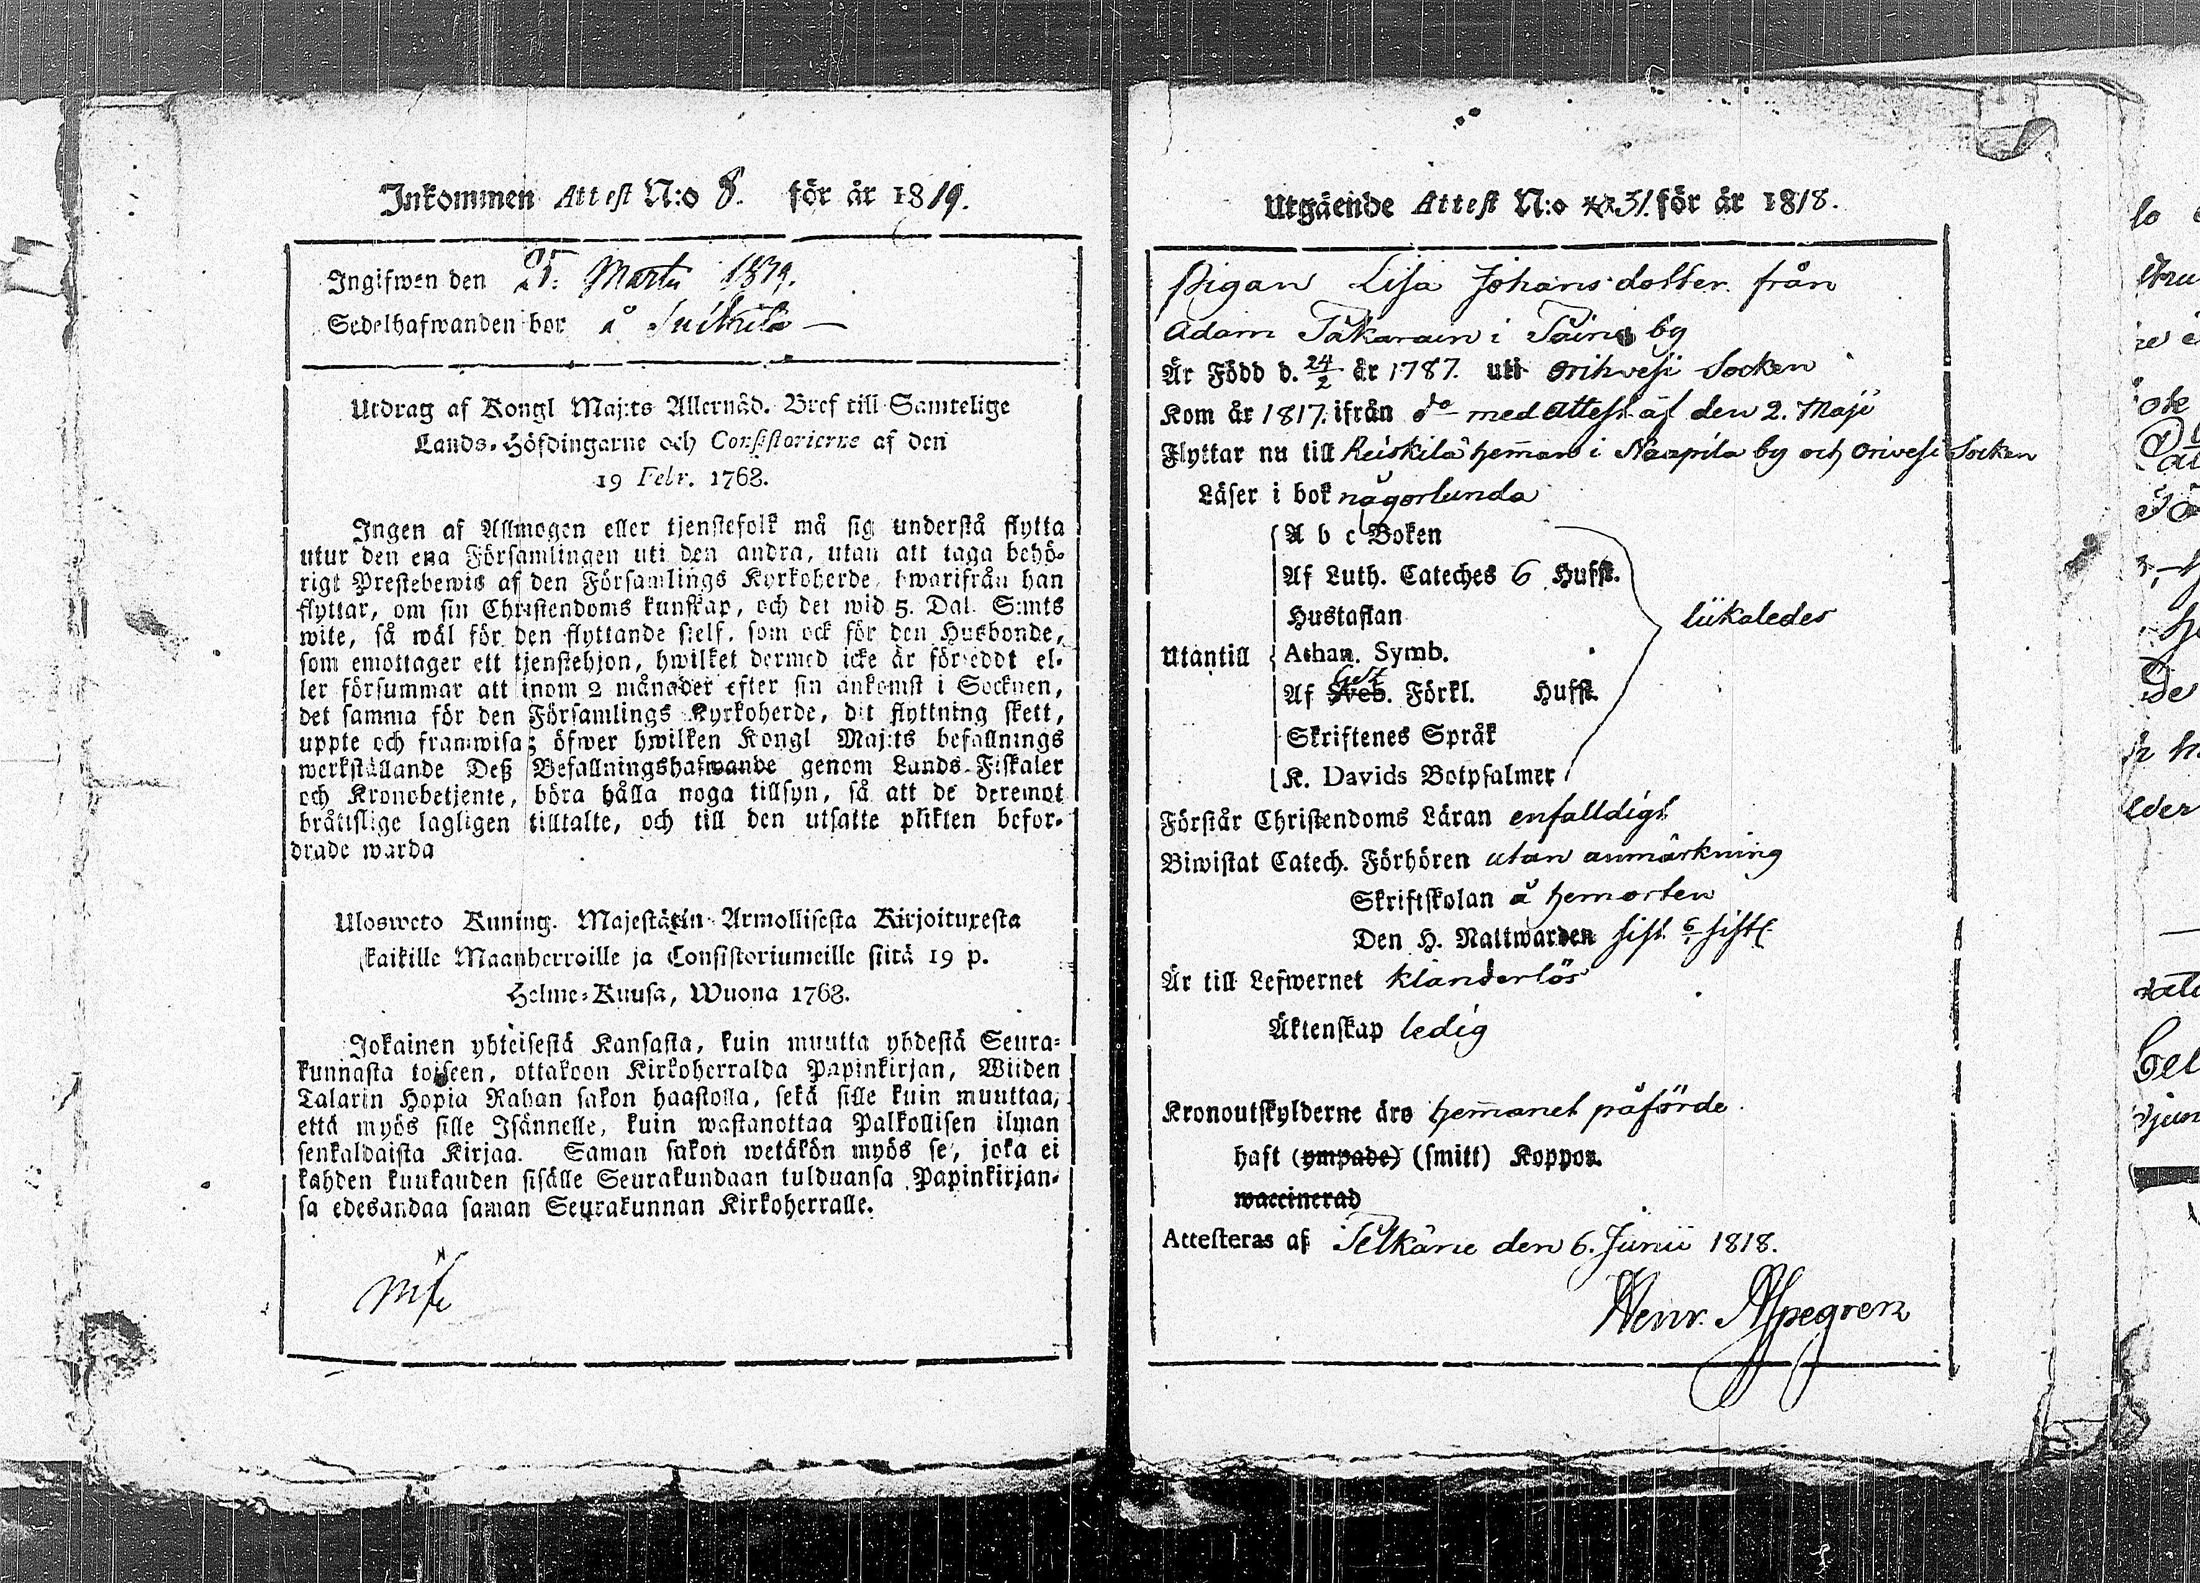 Inkommen Attest N:o 8. för år 1819.
Ingifwen den 25. Martii 1819.
Sedelhafwanden bor å
Utdrag af Kongl Maj:ts Allernåd. Bref till Samtelige
Lands-Höfdingarne och Consistorierne af den
19 Febr. 1763.
Ingen af Allmogen eller tjenstefolk må sig understå flytta
utur den ena Församlingen uti den andra, utan att taga behö-
rigt Prestebewis af den Församlings Kyrkoherde, hwarifrån han
flyttar, om sin Christendoms kunskap, och det wid 5. Dal. S:mts
wite, så wäl för den flyttande sjelf, som ock för den Husbonde,
som emottager ett tjenstehjon, hwilket dermed icke är försedt el-
ler försummar att inom 2 månader efter sin ankomst i Socknen,
det samma för den Församlings Kyrkoherde, dit flyttning skett,
uppte och framwisa; öfwer hwilken Kongl Maj:ts befallnings
werkställande Deß Befallningshafwande genom Lands-Fiskaler
och Kronobetjente, böra hålla noga tillsyn, så att de deremot
bråttslige lagligen tilltalte, och till den utsatte plikten befor-
drade warda
Ulosweto Kuning. Majestätin Armollisesta Kirjoituxesta
kaikille Maanherroille ja Consistoriumeille siitä 19 p.
Helme-Kuusa, Wuona 1763.
Jokainen yhteisestä Kansasta, kuin muutta yhdestä Seura-
kunnasta toiseen, ottakoon Kirkoherralda Papinkirjan, Wiiden
Talarin Hopia Rahan sakon haastolla, sekä sille kuin muuttaa,
että myös sille Isännelle, kuin wastanottaa Palkollisen ilman
senkaldaista Kirjaa. Saman sakon wetäkön myös se, joka ei
kahden kuukauden sisälle Seurakundaan tulduansa Papinkirjan-
sa edesandaa saman Seurakunnan Kirkoherralle.
Utgående Attest N:o 31. för år 1818.
Pigan Lisa Johansdotter från
Adam Takarain i by
Är Född d. 24/2 år 1787. uti Orihvesi Socken
Kom år 1817. ifrån do med Attest af den 2. Maji
Flyttar nu till Reiskilä hem̄an i Naapila by och Orivesi Socken
Läser i bok någorlunda
Utantill
A b c Boken
Af Luth. Cateches 6 Hufst.
Hustaflan
likaledes
Athan. Symb.
Af Sveb. Förkl. Hufst.
Skriftenes Språk
K. Davids Botpsalmer
Förstår Christendoms Läran enfalldigt
Biwistat Catech. Förhören utan anmärkning
Skriftskolan å hemorten
Den H. Nattwarden sist
Är till Lefwernet klanderlös
Äktenskap ledig
Kronoutskylderne äro hem̄anet påförde.
haft (ympade) (smitt) Koppor.
waccinerad
Attesteras af Pelkäne den 6. Junii 1818.
Henr. Alpegren